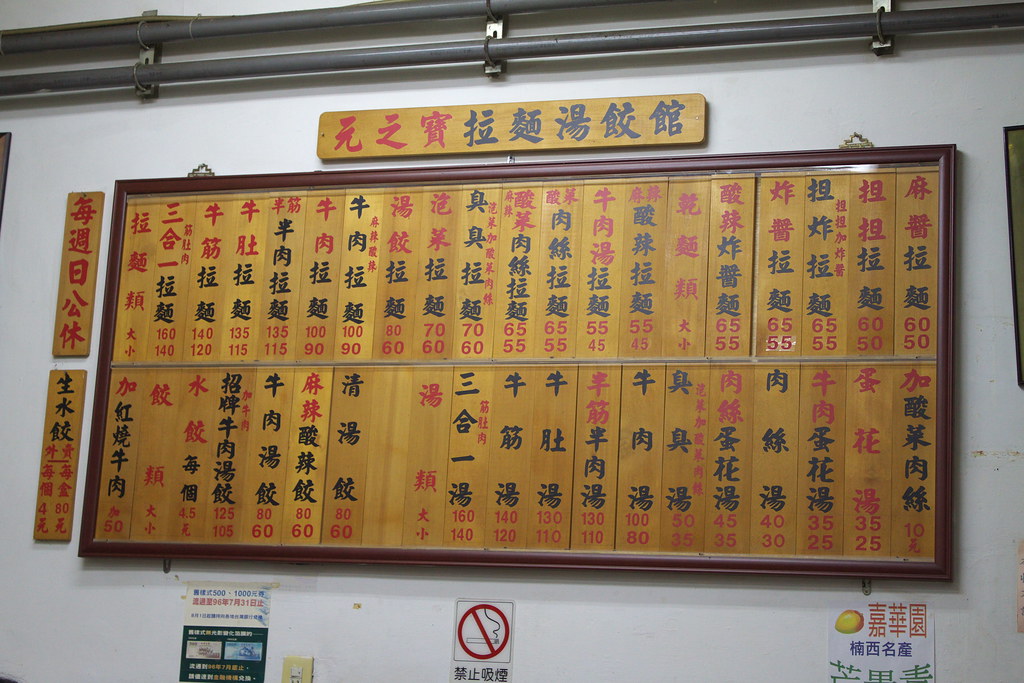 元之寶拉麵湯餃館
每週日公休
生水餃
外賣
每個4元
每盒80元
拉麵類 大 小
三合一拉麵 筋肚肉 160 140
牛筋拉麵 140 120
牛肚拉麵 135 115
半筋半肉拉麵 135 115
牛肉拉麵 100 90
牛肉拉麵 麻辣酸辣 100 90
湯餃拉麵 80 60
泡菜拉麵 70 60
臭臭拉麵 泡菜加酸菜肉絲 70 60
麻辣酸菜肉絲拉麵 65 55
酸菜肉絲拉麵 65 55
牛肉湯拉麵 55 45
麻辣酸辣拉麵 55 45
乾麵類 大 小
酸辣炸醬麵 65 55
炸醬拉麵 65 55
担炸拉麵 担担加炸醬 65 55
担担拉麵 60 50
麻醬拉麵 60 50
加紅燒牛肉 加50
餃類 大 小
水餃每個 4.5元
招牌牛肉湯餃 加牛肉 125 105
牛肉湯餃 80 60
麻辣酸辣餃 80 60
清湯餃 80 60
湯類 大 小
三合一湯 筋肚肉 160 140
牛筋湯 140 120
牛肚湯 130 110
半筋半肉湯 130 110
牛肉湯 100 80
臭臭湯 泡菜加酸菜肉絲 50 35
肉絲蛋花湯 45 35
肉絲湯 40 30
牛肉蛋花湯 35 25
蛋花湯 35 25
加酸菜肉絲 10元
舊樣式500、1000元券
流通至96年7月31日止
禁止吸煙
嘉華園
楠西名產